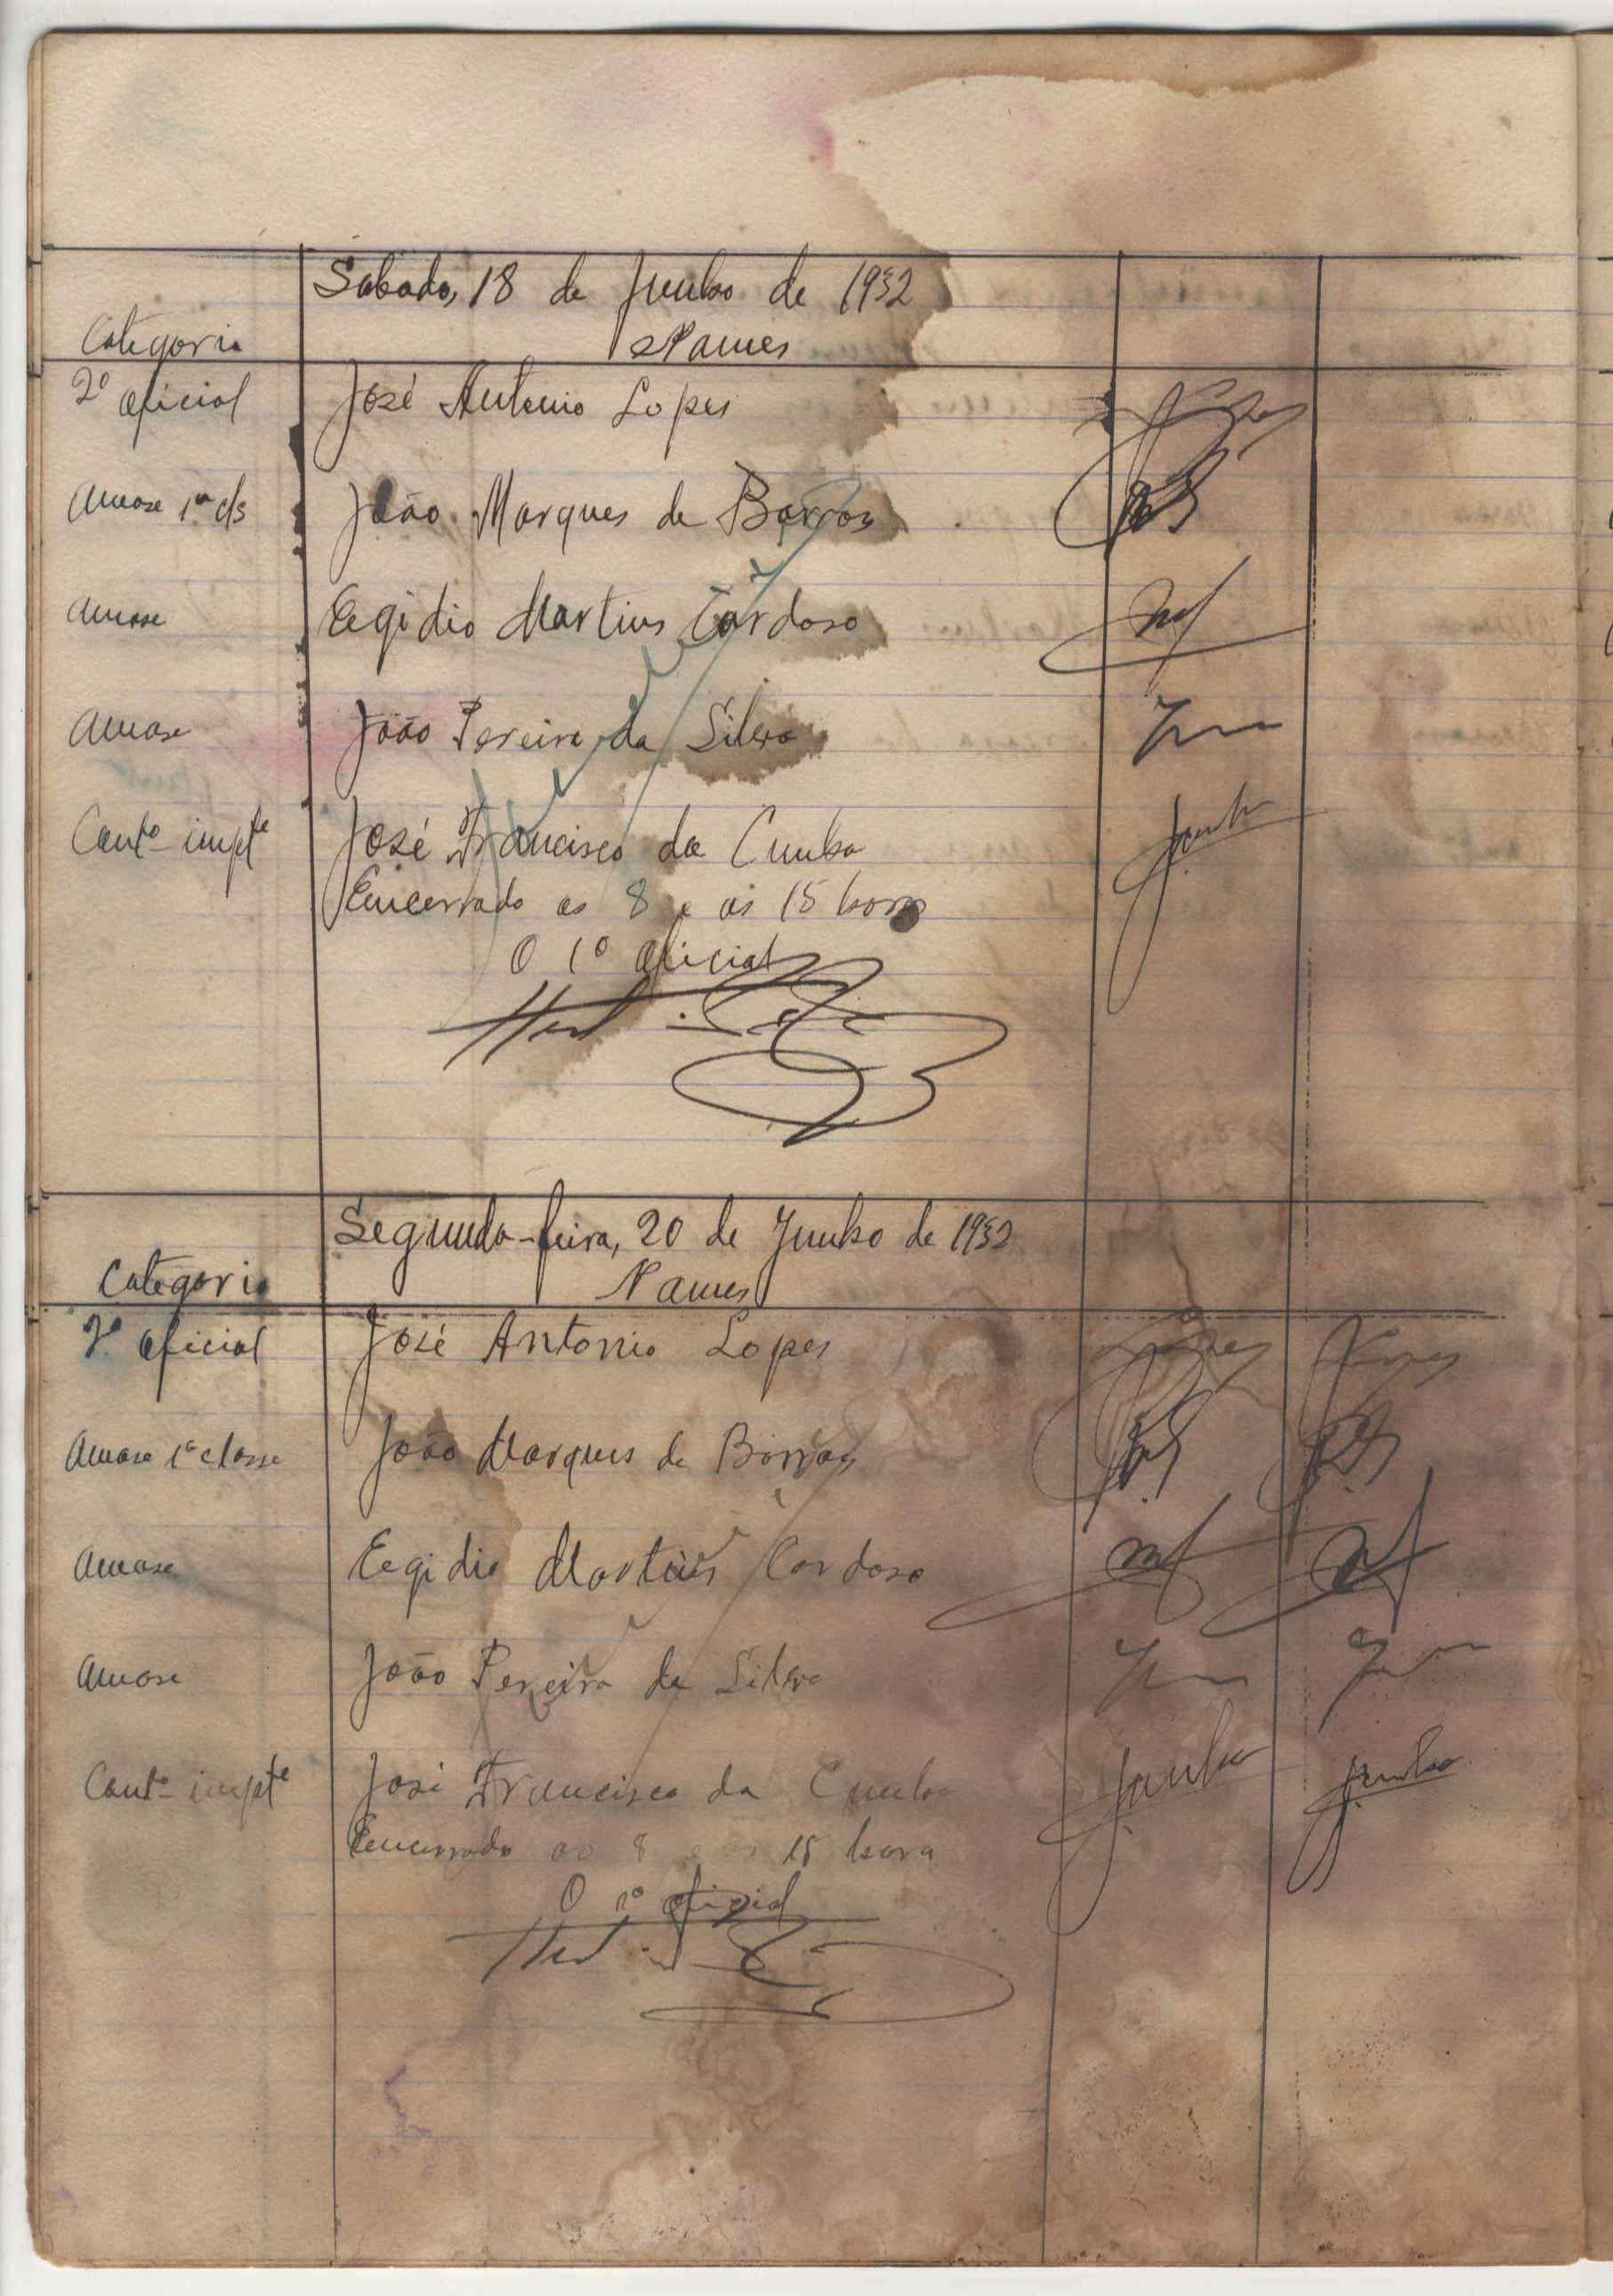 Sabado, 18 de Junho de 1932
Categoria Nomes
2º oficial José Antonio Lopes Lopes
Amase 1ª cls João Marques de Barros
Amase Egidio Martins Cardoso
Amase João Pereira da Silva
Contº impte José Francisco da Cunha JCunha
Encerrado as 8 e as 15 horas
O 1º oficial
Segunda-feira, 20 de Junho de 1932
Categoria Nomes
2º oficial José Antonio Lopes Lopes Lopes
Amase 1ª classe João Marques de Barros
Amase Egidio Martins Cardoso
Amase João Pereira da Silva
Contº impte José Francisco da Cunha JCunha JCunha
Encerrado as 8 e as 15 hora
O 1º oficial